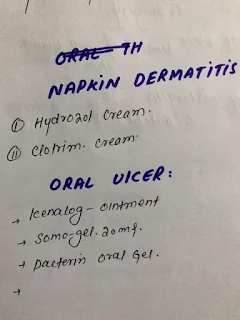 ORAL TH
NAPKIN DERMATITIS
① Hydrozol Cream.
⑪ Clotrim. Cream.
ORAL ULCER:
→ Kenalog - Ointment
→ Somo-gel. 20mg.
→ Dacterin Oral Gel.
→